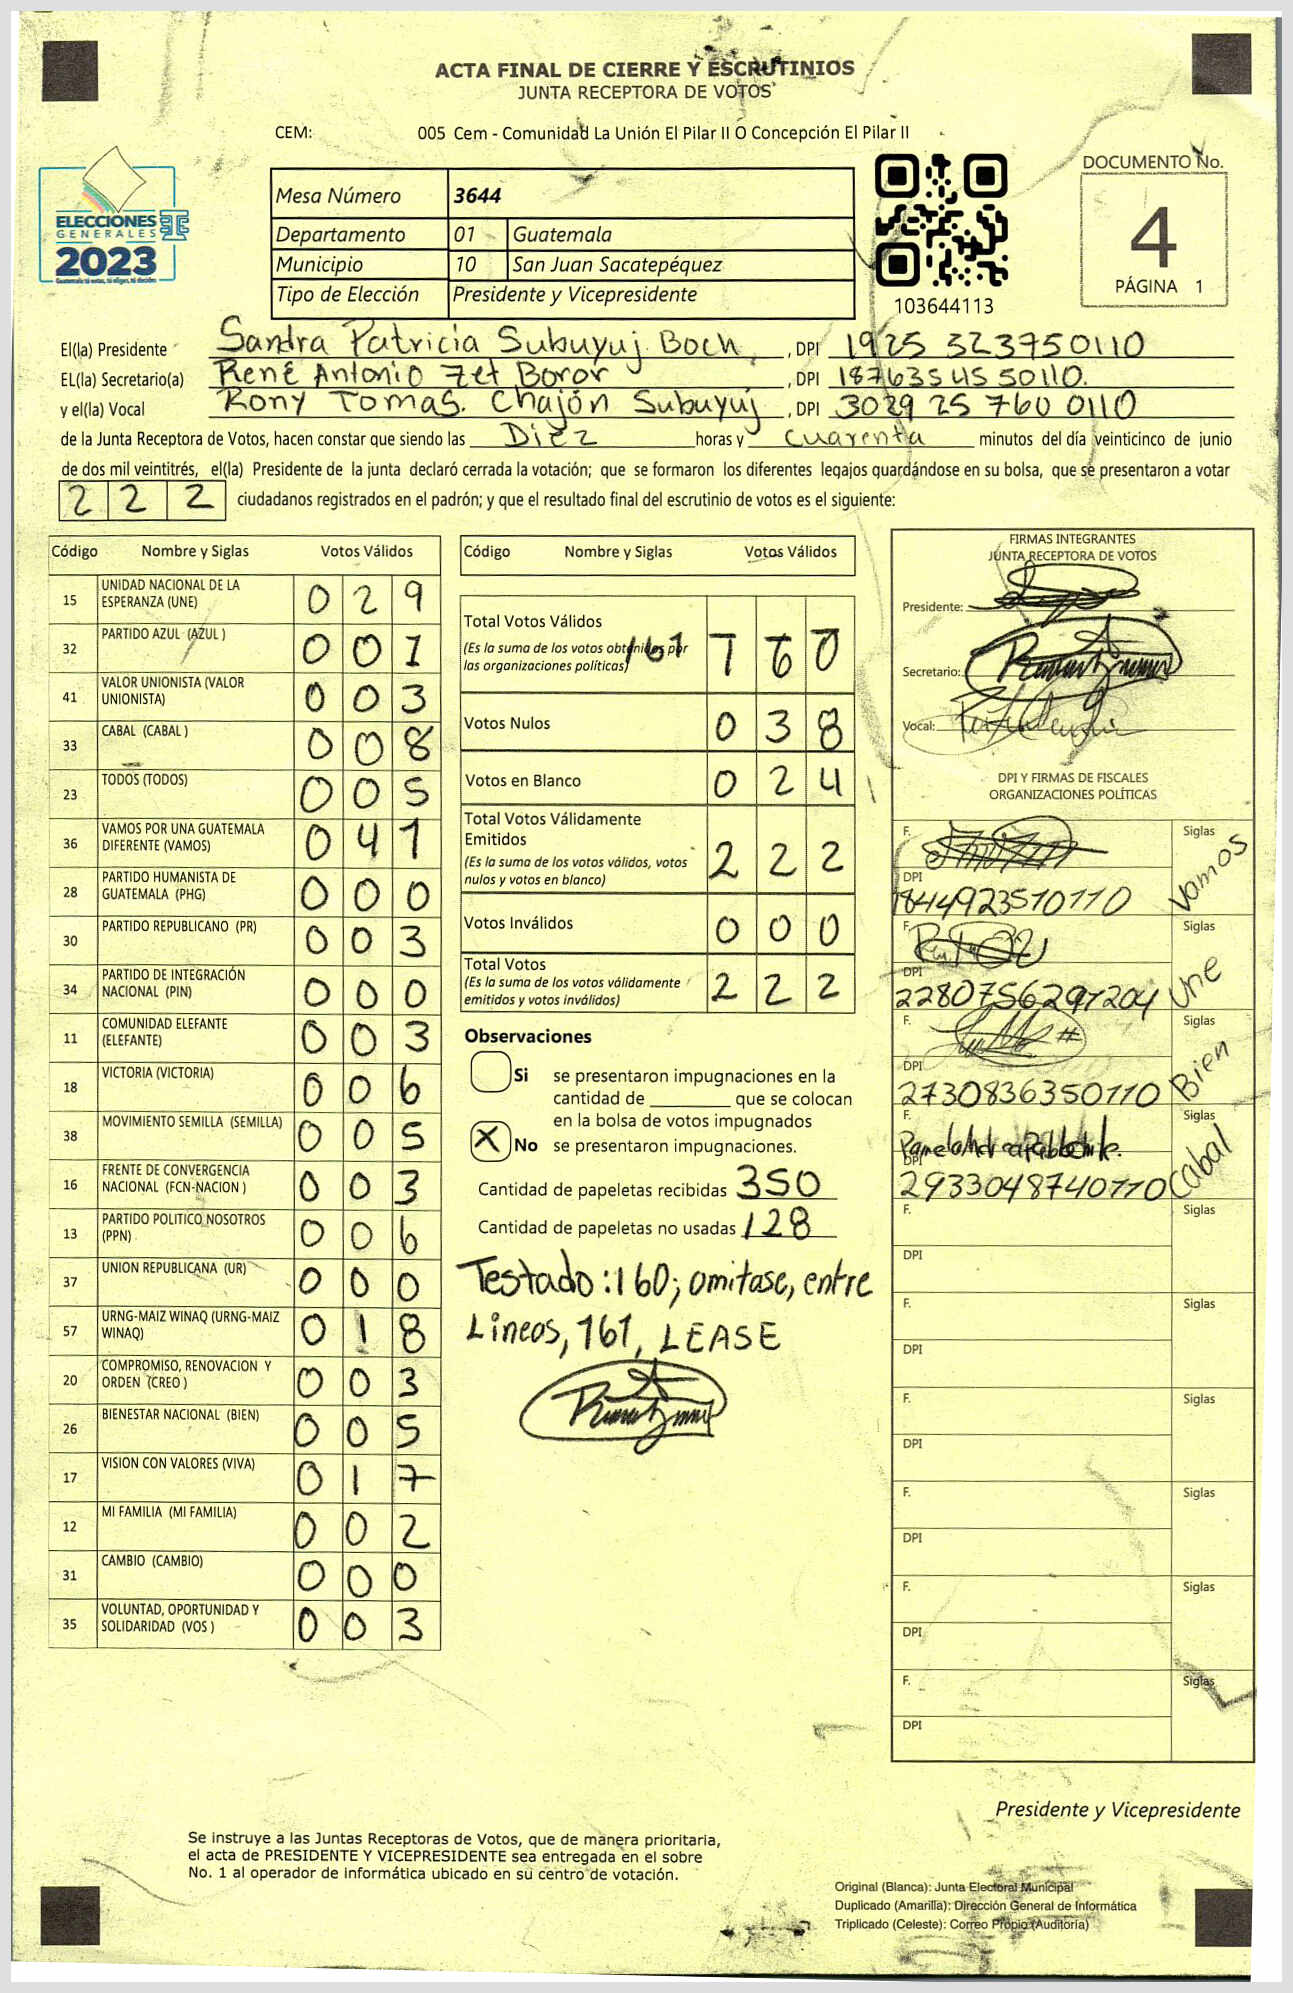 ACTA FINAL DE CIERRE Y ESCRUTINIOS
JUNTA RECEPTORA DE VOTOS
CEM: 005 Cem - Comunidad La Unión El Pilar II O Concepción El Pilar II
ELECCIONES
GENERALES
2023
Mesa Número 3644
Departamento 01 Guatemala
Municipio 10 San Juan Sacatepéquez
Tipo de Elección Presidente y Vicepresidente
103644113
DOCUMENTO No.
4
PÁGINA 1
El(la) Presidente Sandra Patricia Subuyuj Boch, DPI 1925 323750110
EL(la) Secretario(a) René Antonio Zet Boror, DPI 187635455 0110.
y el(la) Vocal Rony Tomas. Chajón Subuyuj, DPI 3029 25 760 0110
de la Junta Receptora de Votos, hacen constar que siendo las Diez horas y cuarenta minutos del día veinticinco de junio
de dos mil veintitrés, el(la) Presidente de la junta declaró cerrada la votación; que se formaron los diferentes legajos guardándose en su bolsa, que se presentaron a votar
222 ciudadanos registrados en el padrón; y que el resultado final del escrutinio de votos es el siguiente:
Código Nombre y Siglas Votos Válidos
15 UNIDAD NACIONAL DE LA ESPERANZA (UNE) 029
32 PARTIDO AZUL (AZUL ) 001
41 VALOR UNIONISTA (VALOR UNIONISTA) 003
33 CABAL (CABAL ) 008
23 TODOS (TODOS) 005
36 VAMOS POR UNA GUATEMALA DIFERENTE (VAMOS) 041
28 PARTIDO HUMANISTA DE GUATEMALA (PHG) 000
30 PARTIDO REPUBLICANO (PR) 003
34 PARTIDO DE INTEGRACIÓN NACIONAL (PIN) 000
11 COMUNIDAD ELEFANTE (ELEFANTE) 003
18 VICTORIA (VICTORIA) 006
38 MOVIMIENTO SEMILLA (SEMILLA) 005
16 FRENTE DE CONVERGENCIA NACIONAL (FCN-NACION ) 003
13 PARTIDO POLITICO NOSOTROS (PPN) 006
37 UNION REPUBLICANA (UR) 000
57 URNG-MAIZ WINAQ (URNG-MAIZ WINAQ) 018
20 COMPROMISO, RENOVACION Y ORDEN (CREO ) 003
26 BIENESTAR NACIONAL (BIEN) 005
17 VISION CON VALORES (VIVA) 017
12 MI FAMILIA (MI FAMILIA) 002
31 CAMBIO (CAMBIO) 000
35 VOLUNTAD, OPORTUNIDAD Y SOLIDARIDAD (VOS ) 003
Código Nombre y Siglas Votos Válidos
Total Votos Válidos
(Es la suma de los votos obtenidos por
las organizaciones políticas) 161 160
Votos Nulos 038
Votos en Blanco 024
Total Votos Válidamente
Emitidos
(Es la suma de los votos válidos, votos
nulos y votos en blanco) 222
Votos Inválidos 000
Total Votos
(Es la suma de los votos válidamente
emitidos y votos inválidos) 222
Observaciones
Si se presentaron impugnaciones en la
cantidad de ________ que se colocan
en la bolsa de votos impugnados
X No se presentaron impugnaciones.
Cantidad de papeletas recibidas 350
Cantidad de papeletas no usadas 128
Testado: 160; omitase, entre
Lineas, 161, LEASE
FIRMAS INTEGRANTES
JUNTA RECEPTORA DE VOTOS
Presidente:
Secretario:
Vocal:
DPI Y FIRMAS DE FISCALES
ORGANIZACIONES POLÍTICAS
F. Siglas Vamos
DPI 1844923510110
F. Siglas Une
DPI 2280756291204
F. Siglas Bien
DPI 2730836350110
F. Siglas Cabal
DPI 2933048740110
F. Siglas
DPI
F. Siglas
DPI
F. Siglas
DPI
F. Siglas
DPI
F. Siglas
DPI
F. Siglas
DPI
Presidente y Vicepresidente
Se instruye a las Juntas Receptoras de Votos, que de manera prioritaria,
el acta de PRESIDENTE Y VICEPRESIDENTE sea entregada en el sobre
No. 1 al operador de informática ubicado en su centro de votación.
Original (Blanca): Junta Electoral Municipal
Duplicado (Amarilla): Dirección General de Informática
Triplicado (Celeste): Correo Propio (Auditoría)